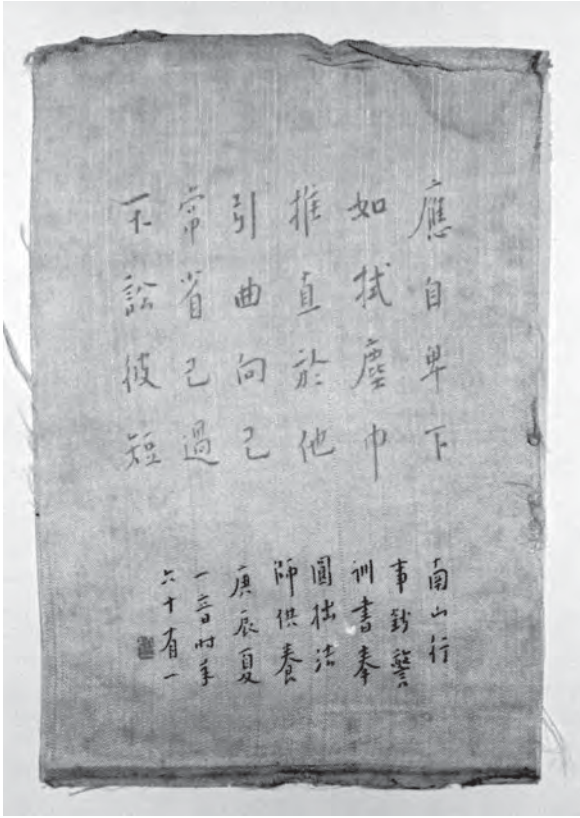 應自卑下
如拭塵巾
推直於他
引曲向己
常省己過
不訟彼短
南山行
事鈔警
訓書奉
圓拙法
師供養
庚辰夏
一音時年
六十有一